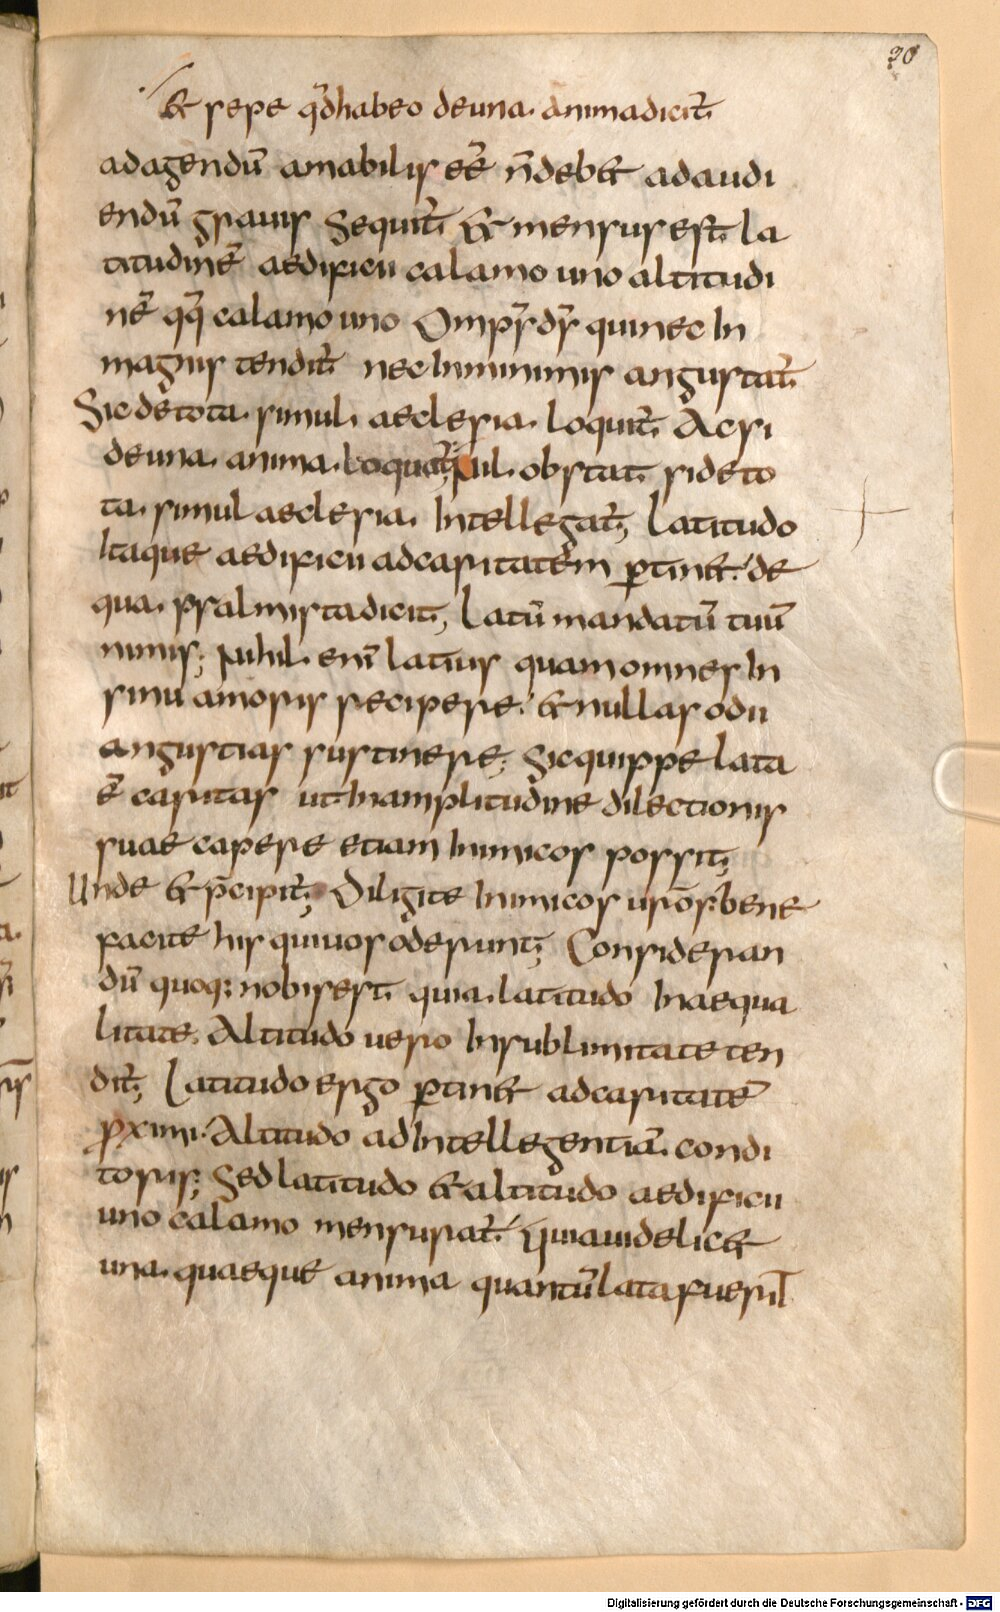 30
& sepe qd̄ habeo de una. anima dicit̄
ad agendū amabilis eē n̄ deb& ad audi
endū grauis Sequit̄ & mensus est la
titudinē aedificii calamo uno altitudi
nē qq̄ calamo uno Omp̄s ds̄ qui nec In
magnis tendit̄ nec In minimis angustat̄
Sic de tota. simul. aeclesia. loquit̄ Ac si
de una. anima. loquat̄; Nil. obstat si de to
ta. simul aeclesia. Intellegat̄; Latitudo
Itaque aedificii ad caritatēm p̄tin&. de
qua. psalmista dicit; Latū mandatū tuū
nimis; Nihil. enī latius quam omnes In
sinu amoris recipere. & nullas odii
angustias sustinere; Sic quippe lata
ē caritas ut In amplitudine dilectionis
suae capere etiam Inimicos possit;
Unde & p̄cipit̄; Diligite Inimicos uros̄. bene
facite his qui uos oderunt; Consideran
dū quoq; nobis est quia. latitudo In aequa
litate. Altitudo uero In sublimitate ten
dit̄; Latitudo ergo p̄tin& ad caritatē
proximi. Altitudo ad Intellegentiā. condi
toris; Sed latitudo & altitudo aedificii
uno calamo mensurat̄. Quia uidelic&
una. quaeque anima quantū lata fuerit
Digitalisierung gefördert durch die Deutsche Forschungsgemeinschaft - DFG